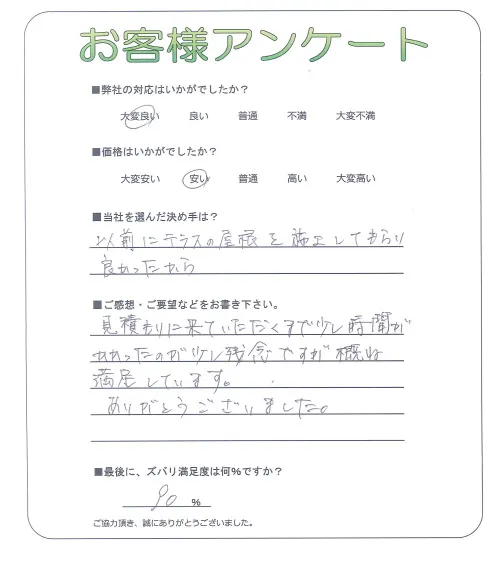 お客様アンケート
■弊社の対応はいかがでしたか？
大変良い 良い 普通 不満 大変不満
■価格はいかがでしたか？
大変安い 安い 普通 高い 大変高い
■当社を選んだ決め手は？
以前にテラスの屋根を施工してもらい
良かったから
■ご感想・ご要望などをお書き下さい。
見積もりに来ていただくまで少し時間が
かかったのが少し残念ですが概ね
満足しています。
ありがとうございました。
■最後に、ズバリ満足度は何%ですか？
90 %
ご協力頂き、誠にありがとうございました。